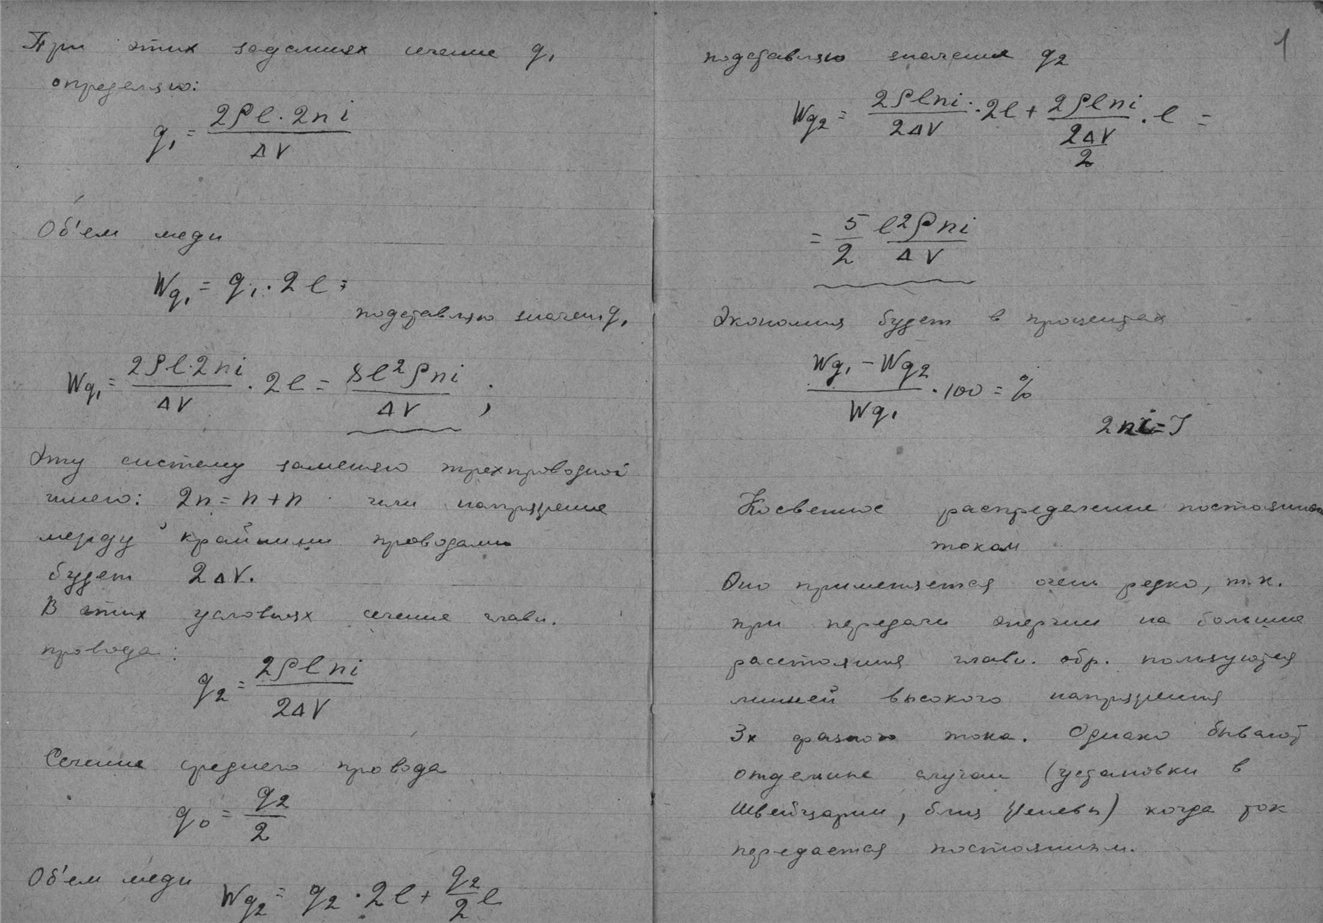 При этих заданиях сечение q₁
определяю:
q₁ = 2ρl·2ni / ΔV
Об'ем меди
Wq₁ = q₁·2l =
подставляю значен q₁
Wq₁ = 2ρl·2ni / ΔV · 2l = 8l²ρni / ΔV ;
Эту систему заменяю трехпроводной
имею: 2n = n + n или напряжение
между крайними проводами
будет 2ΔV.
В этих условиях сечение главн.
провода:
q₂ = 2ρlni / 2ΔV
Сечение среднего провода
q₀ = q₂ / 2
Об'ем меди Wq₂ = q₂·2l + q₂/2 l
1
подставляю значения q₂
Wq₂ = 2ρlni / 2ΔV · 2l + 2ρlni / (2ΔV / 2) · l =
= 5/2 l²ρni / ΔV
Экономия будет в процентах
(Wq₁ – Wq₂) / Wq₁ · 100 = %
2ni = J
Косвенное распределение постоянным
током
Оно применяется очень редко, т.к.
при передачи энергии на большие
расстояния главн. обр. пользуются
линией высокого напряжения
3х фазного тока. Однако бывают
отдельные случаи (установки в
Швейцарии, близ Женевы) когда ток
передается постоянным.